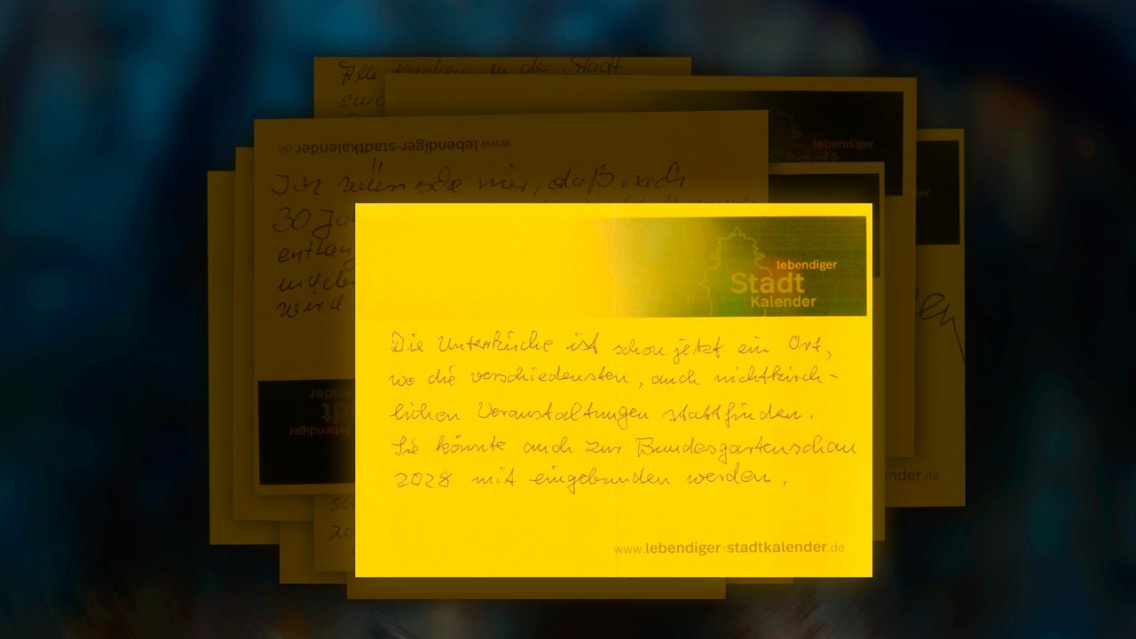 Alle Kirchen in der Stadt
lebendiger
www.lebendiger-stadtkalender.de
Ich wünsche mir, daß nach
30
wird
lebendiger
Stadt
Kalender
Die Unterkirche ist schon jetzt ein Ort,
wo die verschiedensten, auch nichtkirch-
lichen Veranstaltungen stattfinden.
Sie könnte auch zur Bundesgartenschau
2028 mit eingebunden werden.
www.lebendiger-stadtkalender.de